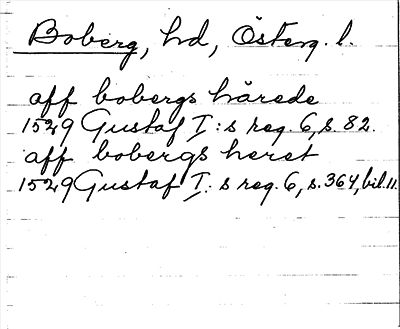 Boberg, hd, Österg. l.
aff bobergs hårede
1529 Gustaf I:s reg. 6, s. 82.
aff bobergs heret
1529 Gustaf I:s reg. 6, s. 364, bil. 11.